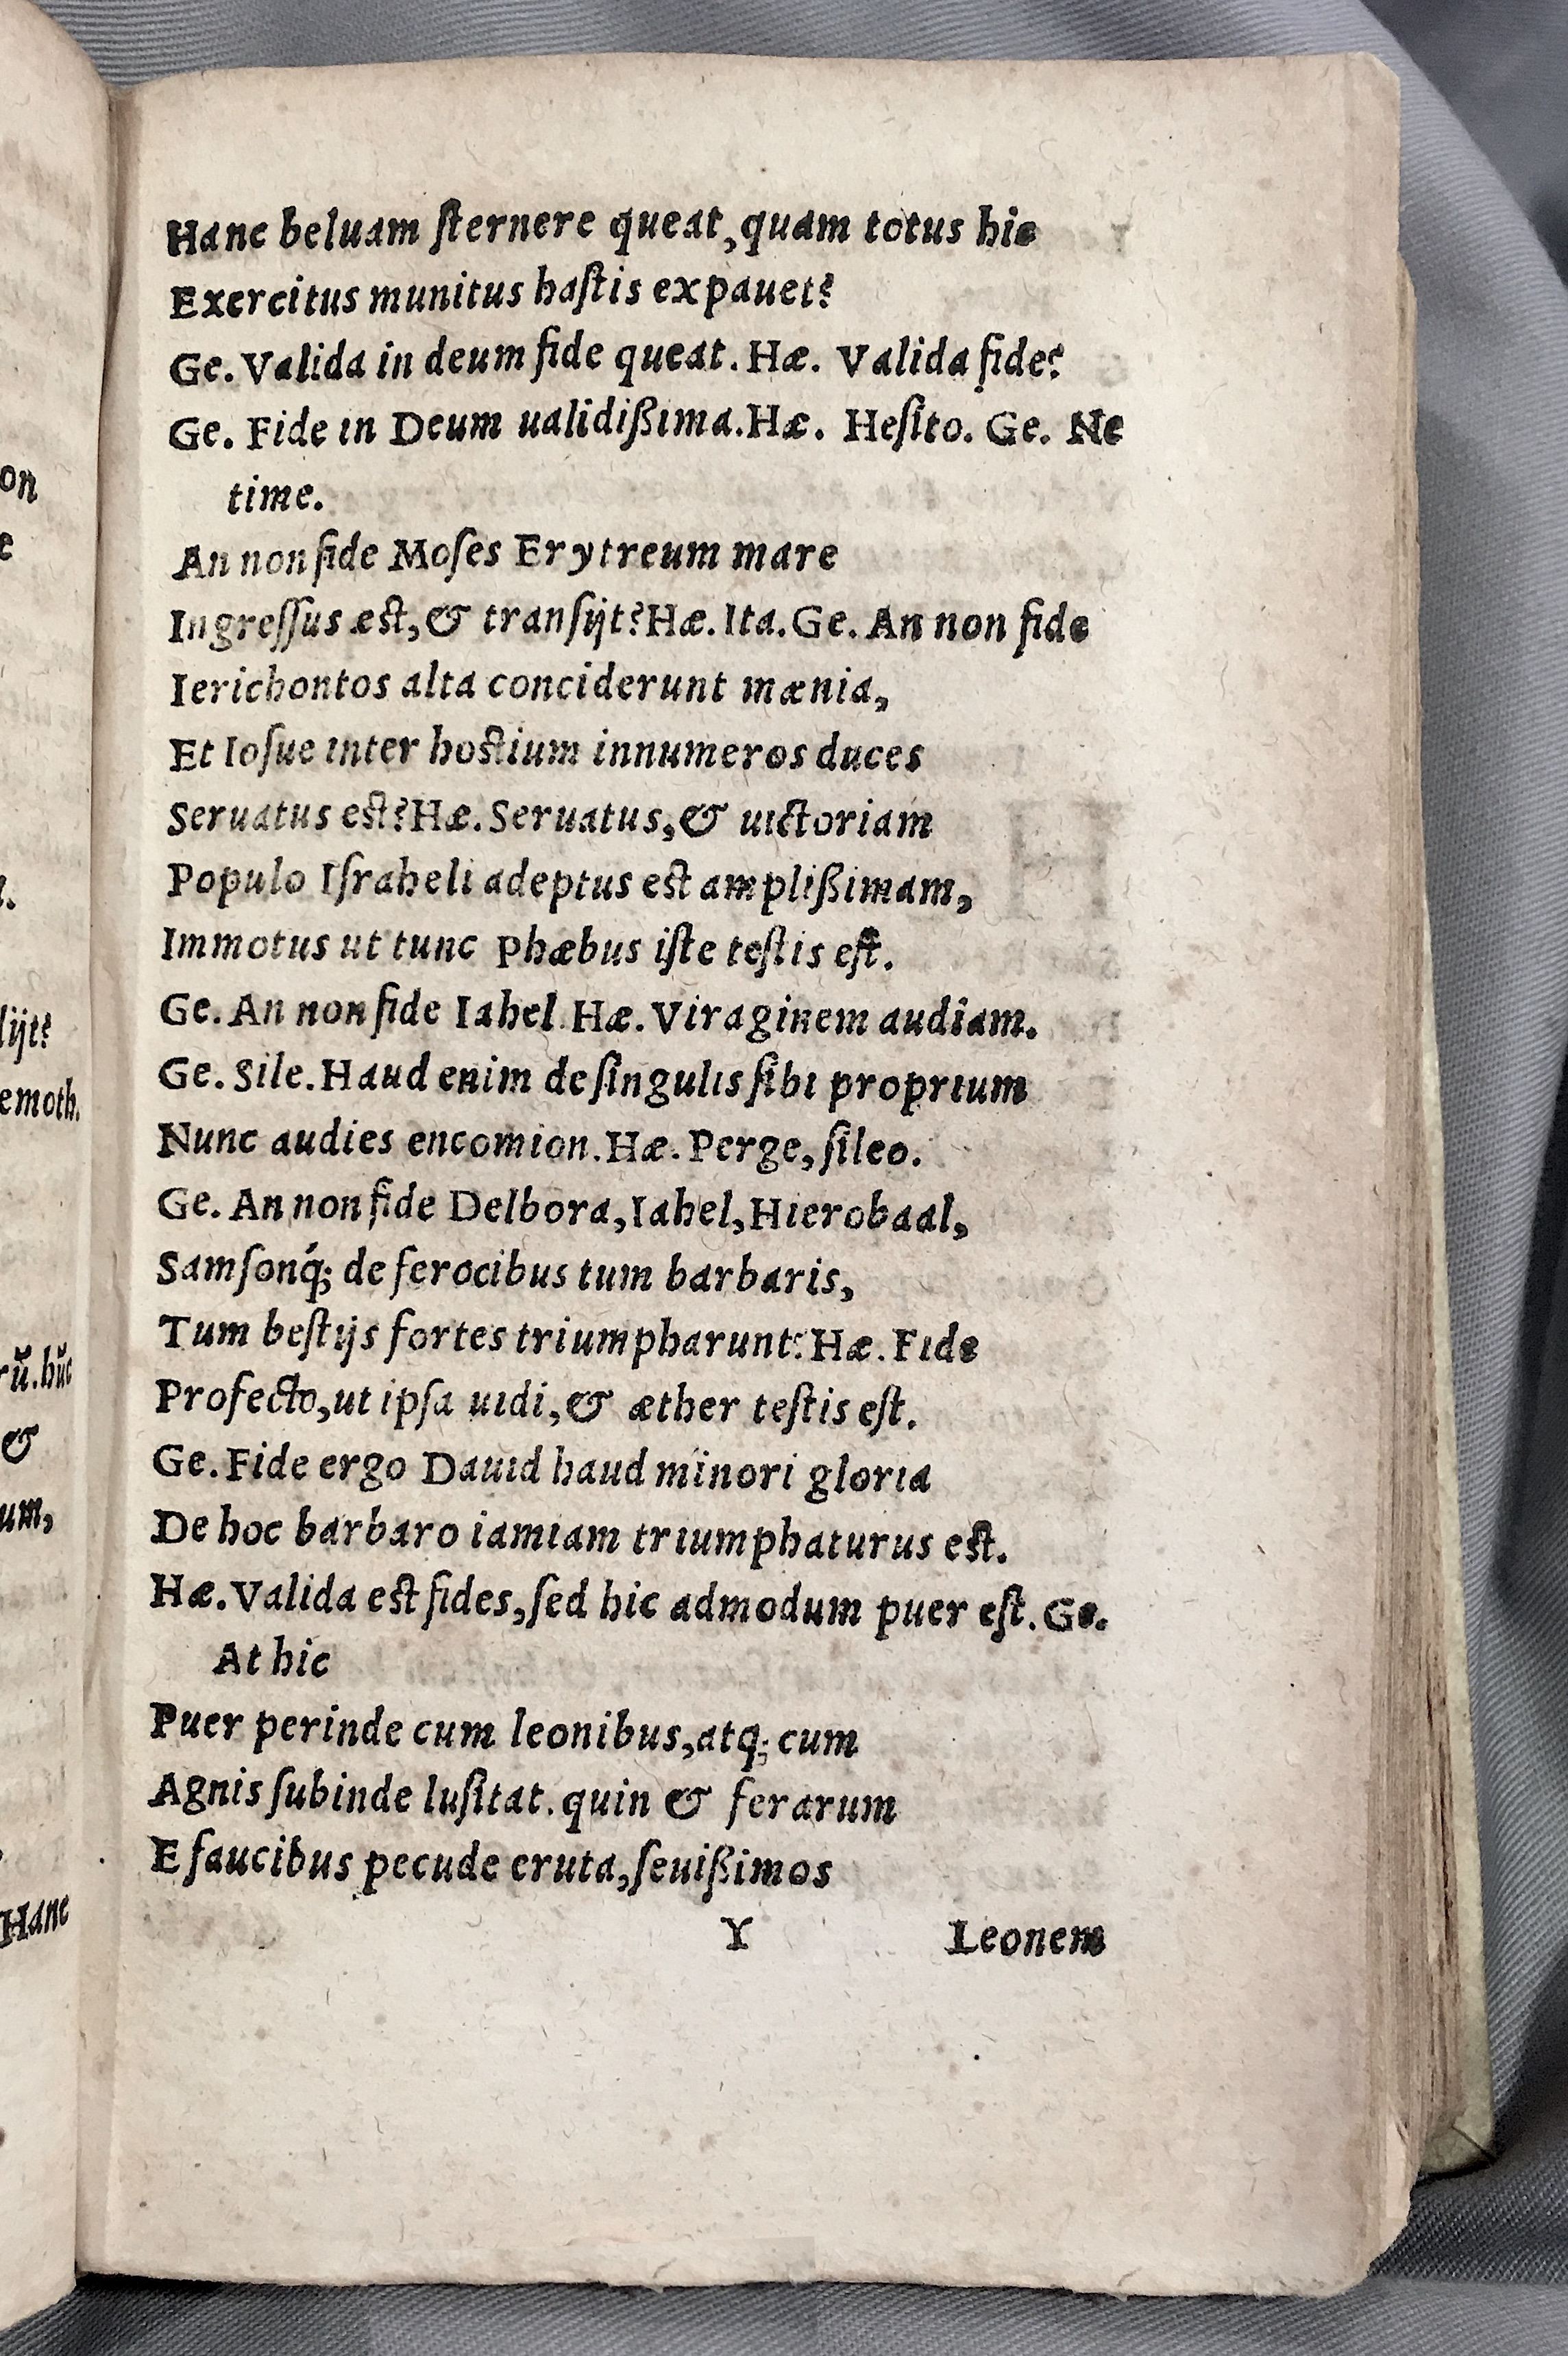 Hanc beluam ſternere queat, quam totus hic
Exercitus munitus haſtis expauet?
Ge. Valida in deum fide queat. Hæ. Valida fide?
Ge. Fide in Deum ualidißima. Hæ. Heſito. Ge. Ne
time.
An non fide Moſes Erytreum mare
Ingreſſus est, & tranſijt? Hæ. Ita. Ge. An non fide
Ierichontos alta conciderunt mænia,
Et Ioſue inter hostium innumeros duces
Seruatus est? Hæ. Seruatus, & uictoriam
Populo Iſraheli adeptus est amplißimam,
Immotus ut tunc Phæbus iſte teſtis eſt.
Ge. An non fide Iahel. Hæ. Viraginem audiam.
Ge. Sile. Haud enim de ſingulis ſibi proprium
Nunc audies encomion. Hæ. Perge, ſileo.
Ge. An non fide Delbora, Iahel, Hierobaal,
Samſonq́; de ferocibus tum barbaris,
Tum beſtijs fortes triumpharunt? Hæ. Fide
Profecto, ut ipſa uidi, & æther teſtis eſt.
Ge. Fide ergo Dauid haud minori gloria
De hoc barbaro iamiam triumphaturus est.
Hæ. Valida est fides, ſed hic admodum puer eſt. Ge.
At hic
Puer perinde cum leonibus, atq; cum
Agnis ſubinde luſitat. quin & ferarum
E faucibus pecude eruta, ſeuißimos
Y Leonem
on
e
lijt?
emoth.
rŭ. hŭc
&
um,
Hanc